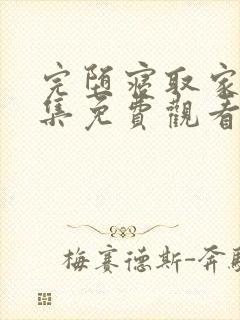 完堕寝取家
集免費觀看
梅赛德斯-奔馳